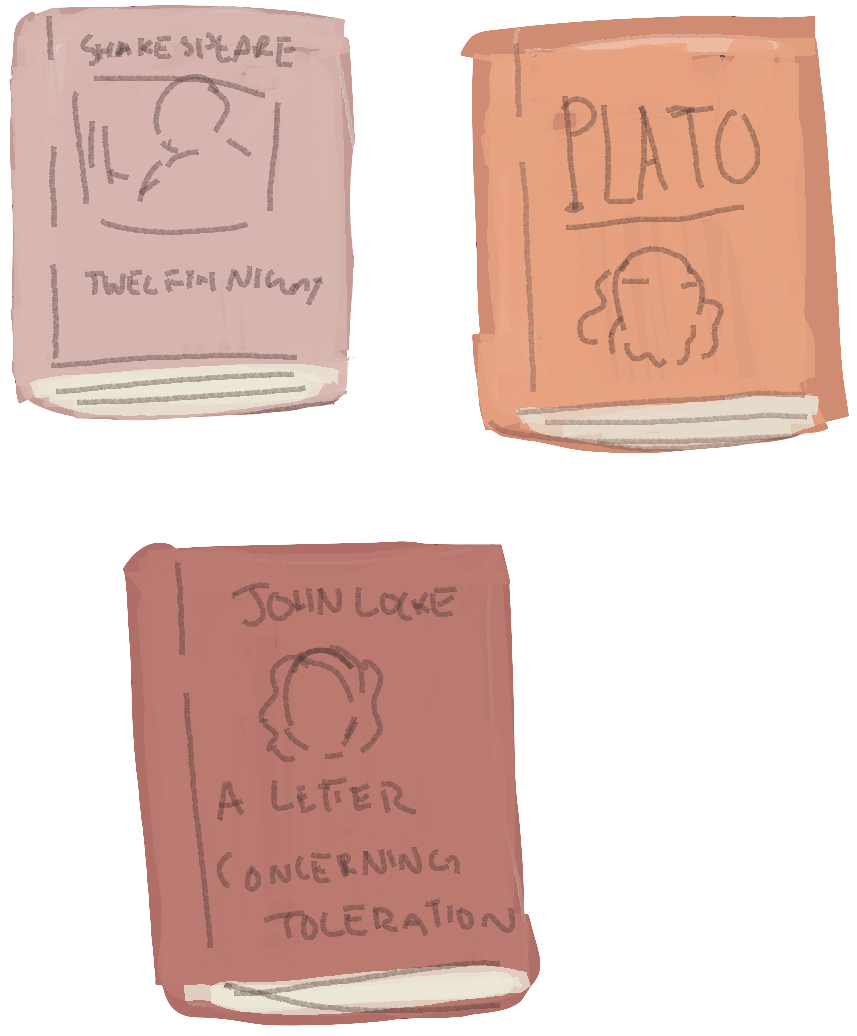 SHAKESPEARE
TWELFTH NIGHT
PLATO
JOHN LOCKE
A LETTER
CONCERNING
TOLERATION